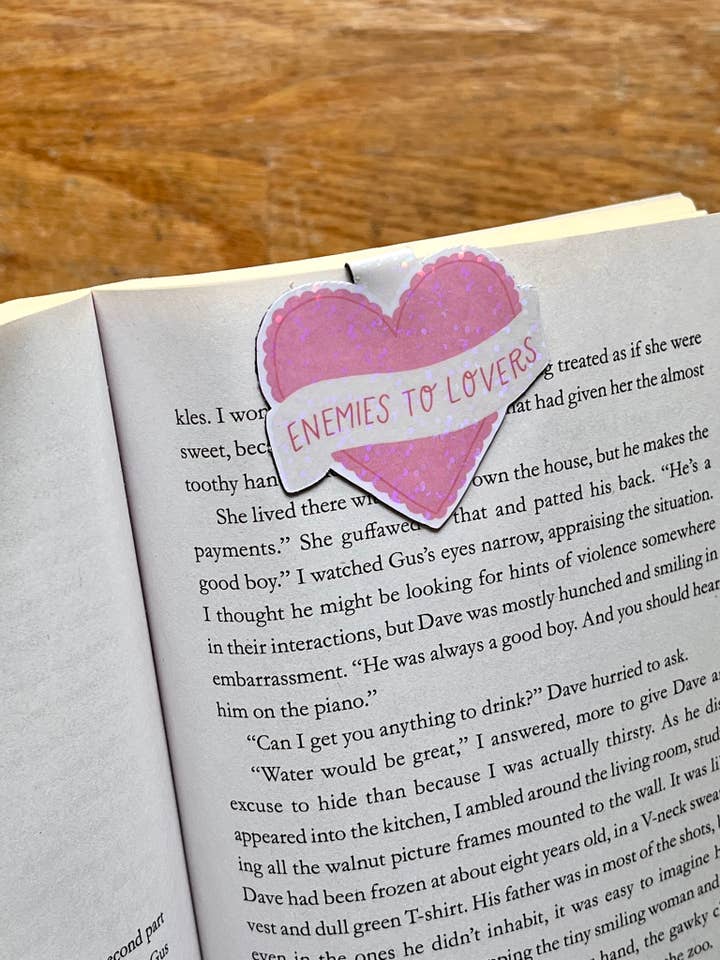 ENEMIES TO LOVERS
g treated as if she were
kles. I wor
hat had given her the almost
sweet, bec
toothy han
own the house, but he makes the
She lived there wi
payments.” She guffawed that and patted his back. “He’s a
good boy.” I watched Gus’s eyes narrow, appraising the situation.
I thought he might be looking for hints of violence somewhere
in their interactions, but Dave was mostly hunched and smiling in
embarrassment. “He was always a good boy. And you should hear
him on the piano.”
“Can I get you anything to drink?” Dave hurried to ask.
“Water would be great,” I answered, more to give Dave a
excuse to hide than because I was actually thirsty. As he dis
appeared into the kitchen, I ambled around the living room, stud
ing all the walnut picture frames mounted to the wall. It was li
Dave had been frozen at about eight years old, in a V-neck swea
vest and dull green T-shirt. His father was in most of the shots,
even in the ones he didn’t inhabit, it was easy to imagine h
ping the tiny smiling woman and
hand, the gawky c
he zoo.
cond part
Gus